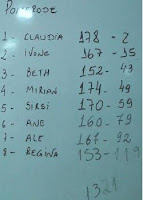 POMERODE
1 - CLAUDIA 178 - 2
2 - IVONE 167 - 15
3 - BETH 152 - 43
4 - MIRIAN 174 - 49
5 - SIRSI 170 - 59
6 - ANE 160 - 79
7 - ALE 167 - 92
8 - REGINA 153 - 119
1321